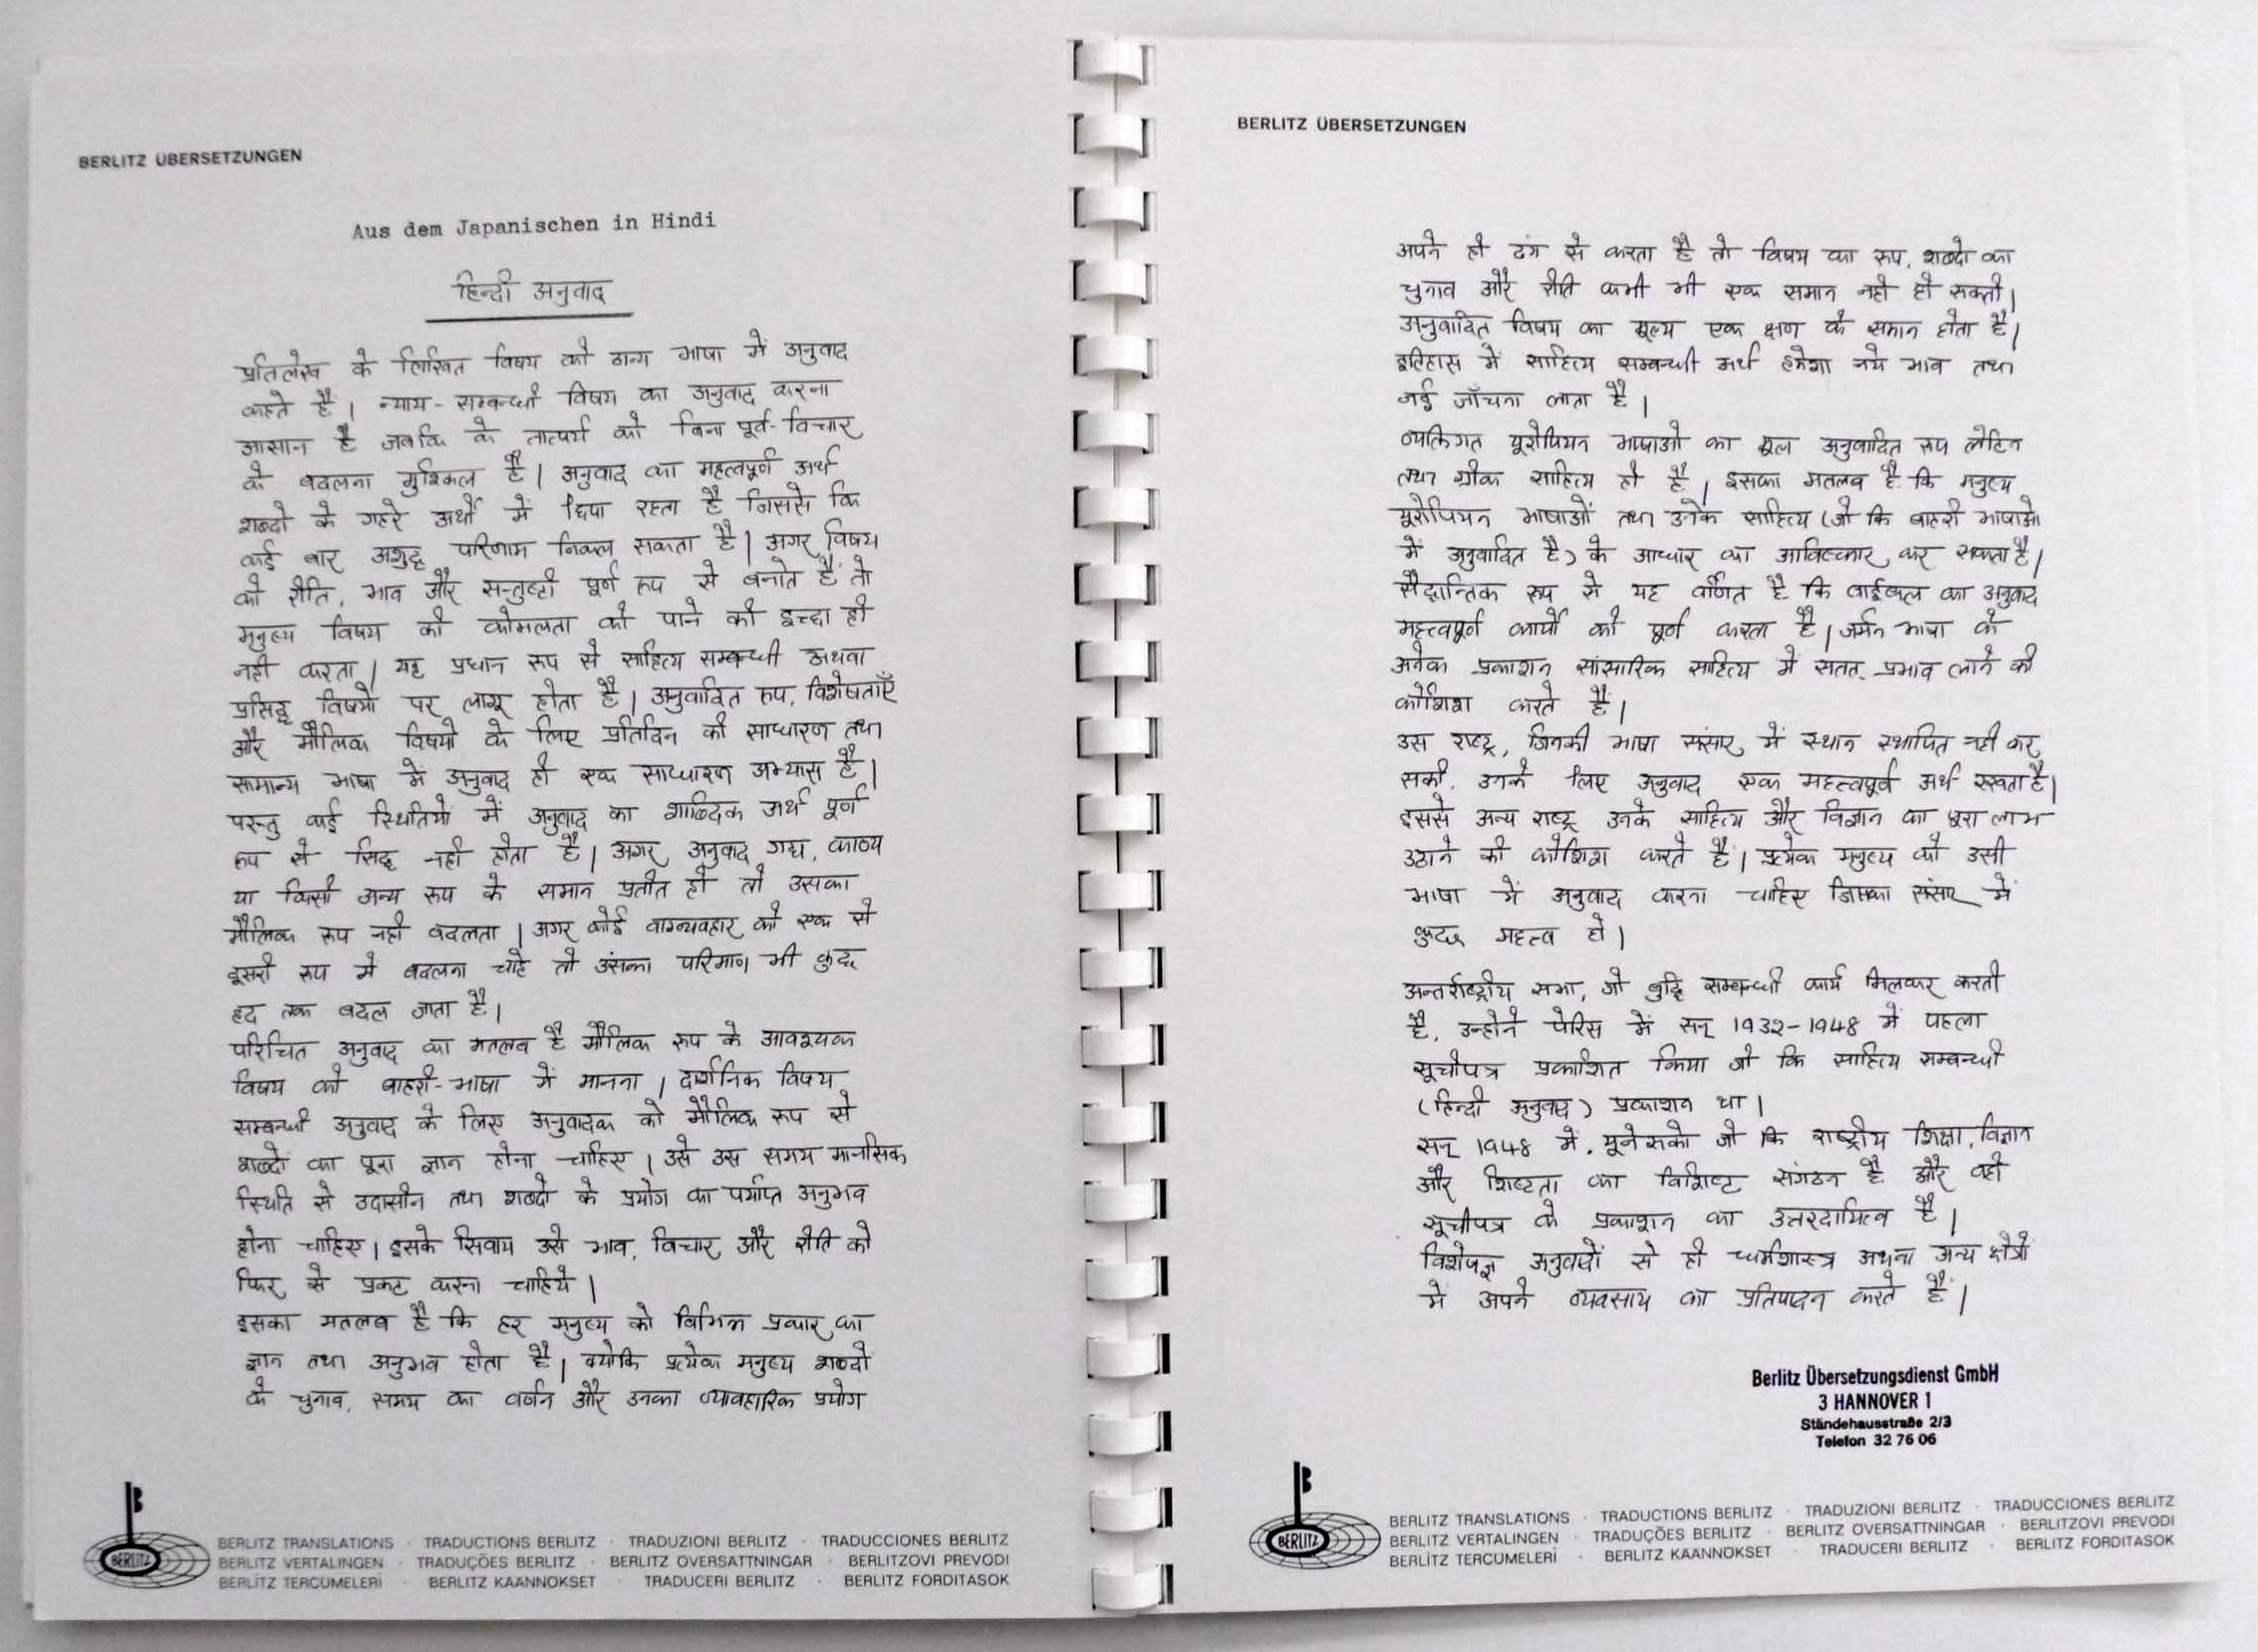 BERLITZ ÜBERSETZUNGEN
Aus dem Japanischen in Hindi
हिन्दी अनुवाद
प्रतिलेख के लिखित विषय को अन्य भाषा में अनुवाद
कहते है । न्याय-सम्बन्धी विषय का अनुवाद करना
आसान है जबकि के तात्पर्य को बिना पूर्व-विचार
के बदलना मुश्किल है । अनुवाद का महत्वपूर्ण अर्थ
शब्दो के गहरे अर्थो में छिपा रहता है जिससे कि
कई बार अशुद्ध परिणाम निकल सकता है । अगर विषय
को रीति, भाव और सन्तुष्टी पूर्ण रूप से बनाते है तो
मनुष्य विषय की कोमलता को पाने की इच्छा ही
नही करता । यह प्रधान रूप से साहित्य सम्बन्धी अथवा
प्रसिद्ध विषयो पर लागू होता है । अनुवादित रूप, विशेषताएँ
और मौलिक विषयो के लिए प्रतिदिन की साधारण तथा
सामान्य भाषा में अनुवाद ही एक साधारण अभ्यास है ।
परन्तु कई स्थितियो में अनुवाद का शाब्दिक अर्थ पूर्ण
रूप से सिद्ध नही होता है । अगर अनुवाद गद्य, काव्य
या किसी अन्य रूप के समान प्रतीत हो तो उसका
मौलिक रूप नही बदलता । अगर कोई वाग्व्यवहार को एक से
दूसरी रूप मे बदलना चाहे तो उसका परिमाण भी कुछ
हद तक बदल जाता है ।
परिचित अनुवाद का मतलब है मौलिक रूप के आवश्यक
विषय को बाहरी-भाषा में मानना । दार्शनिक विषय
सम्बन्धी अनुवाद के लिए अनुवादक को मौलिक रूप से
शब्दों का पूरा ज्ञान होना चाहिए । उसे उस समय मानसिक
स्थिति से उदासीन तथा शब्दो के प्रयोग का पर्याप्त अनुभव
होना चाहिए । इसके सिवाय उसे भाव, विचार और रीति को
फिर से प्रकट करना चाहिये ।
इसका मतलब है कि हर मनुष्य को विभिन्न प्रकार का
ज्ञान तथा अनुभव होता है । क्योकि प्रत्येक मनुष्य शब्दो
के चुनाव, समय का वर्णन और उनका व्यावहारिक प्रयोग
BERLITZ
BERLITZ TRANSLATIONS · TRADUCTIONS BERLITZ · TRADUZIONI BERLITZ · TRADUCCIONES BERLITZ
BERLITZ VERTALINGEN · TRADUÇÕES BERLITZ · BERLITZ OVERSATTNINGAR · BERLITZOVI PREVODI
BERLİTZ TERCUMELERİ · BERLITZ KAANNOKSET · TRADUCERI BERLITZ · BERLITZ FORDITASOK
BERLITZ ÜBERSETZUNGEN
अपने ही ढंग से करता है तो विषय का रूप, शब्दो का
चुनाव और रीति कभी भी एक समान नही हो सकती ।
अनुवादित विषय का मूल्य एक क्षण के समान होता है ।
इतिहास में साहित्य सम्बन्धी अर्थ हमेशा नये भाव तथा
नई जाँचना लाता है ।
व्यक्तिगत यूरोपियन भाषाओ का मूल अनुवादित रूप लेटिन
तथा ग्रीक साहित्य ही है । इसका मतलब है कि मनुष्य
यूरोपियन भाषाओं तथा उनके साहित्य (जो कि बाहरी भाषाओ
में अनुवादित है) के आधार का आविष्कार कर सकता है ।
सैद्धान्तिक रूप से यह वर्णित है कि बाईबल का अनुवाद
महत्त्वपूर्ण कार्यो को पूर्ण करता है । जर्मन भाषा के
अनेक प्रकाशन सांसारिक साहित्य में सतत् प्रभाव लाने की
कोशिश करते है ।
उस राष्ट्र, जिनकी भाषा संसार में स्थान स्थापित नही कर
सकी, उनके लिए अनुवाद एक महत्त्वपूर्ण अर्थ रखता है ।
इससे अन्य राष्ट्र उनके साहित्य और विज्ञान का पूरा लाभ
उठाने की कोशिश करते है । प्रत्येक मनुष्य को उसी
भाषा में अनुवाद करना चाहिए जिसका संसार में
कुछ महत्व हो ।
अन्तर्राष्ट्रीय सभा, जो बुद्धि सम्बन्धी कार्य मिलकर करती
है, उन्होने पेरिस में सन् 1932-1948 में पहला
सूचीपत्र प्रकाशित किया जो कि साहित्य सम्बन्धी
(हिन्दी अनुवाद) प्रकाशन था ।
सन् 1948 में, यूनेसको जो कि राष्ट्रीय शिक्षा, विज्ञान
और शिष्टता का विशिष्ट संगठन है और वही
सूचीपत्र के प्रकाशन का उत्तरदायित्व है ।
विशेषज्ञ अनुवादों से ही धर्मशास्त्र अथवा अन्य क्षेत्रो
में अपने व्यवसाय का प्रतिपादन करते है ।
Berlitz Übersetzungsdienst GmbH
3 HANNOVER 1
Ständehausstraße 2/3
Telefon 32 76 06
BERLITZ
BERLITZ TRANSLATIONS · TRADUCTIONS BERLITZ · TRADUZIONI BERLITZ · TRADUCCIONES BERLITZ
BERLITZ VERTALINGEN · TRADUÇÕES BERLITZ · BERLITZ OVERSATTNINGAR · BERLITZOVI PREVODI
BERLİTZ TERCUMELERİ · BERLITZ KAANNOKSET · TRADUCERI BERLITZ · BERLITZ FORDITASOK